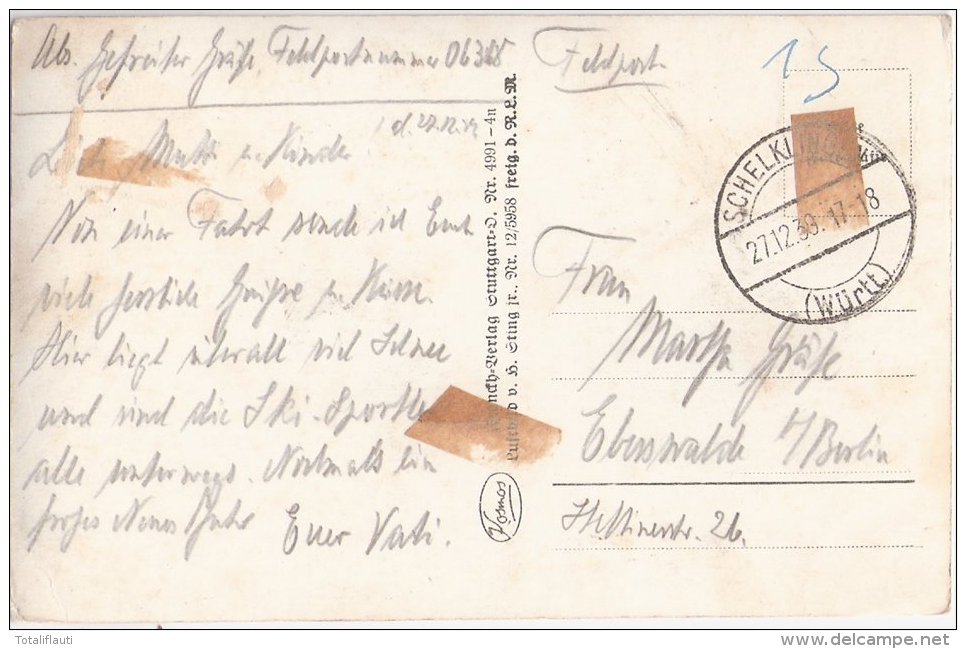 Abs. Gefreiter Gräfe, Feldpostnummer 06368
d. 27.12.39
Mutti u. Kinder
Von einer Fahrt sende ich Euch
viele herzliche Grüße u. Küsse.
Hier liegt überall viel Schnee
und sind die Ski-Sportler
alle unterwegs. Nochmals ein
frohes Neues Jahr
Euer Vati.
nckh-Verlag Stuttgart-O. Nr. 4991-4n
Luftbild v. H. Sting jr., Nr. 12/5958 freig. d. R.L.M.
Kosmos
Feldpost
15
SCHELKLINGEN
27.12.39.17-18
(Württ)
Frau
Martha Gräfe
Eberswalde b/Berlin
Stettinerstr. 26.
Totaliflauti
www.delcampe.net